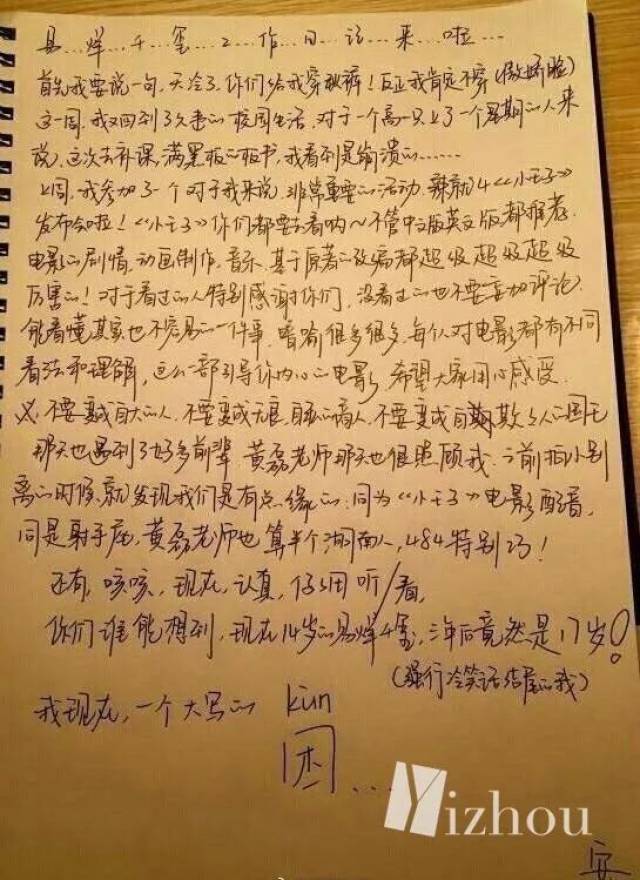 易…烊…千…玺…工…作…日…记…来…啦…
首先我要说一句,天冷了,你们给我穿秋裤!反正我肯定不穿(傲娇脸)
这一周,我又回到了久违的校园生活,对于一个高一只上了一个星期的人来
说,这次去补课,满黑板的板书,我看到是崩溃的……
上周,我参加了一个对于我来说,非常重要的活动,辣就是《小王子》
发布会啦!《小王子》你们都要去看哟~不管中文版英文版,都推荐,
电影的剧情,动画制作,音乐,基于原著的改编都超级超级超级
厉害的!对于看过的人特别感谢你们,没看过的也不要妄加评论,
能看懂其实也不容易的一件事,暗喻很多很多,每个人对电影都有不同
看法和理解,这么一部引导你内心的电影,希望大家用心感受.
不要变成自大的人,不要变成无良、自私的商人,不要变成自欺欺人的国王
那天也遇到了好多前辈,黄磊老师那天也很照顾我,之前拍小别
离的时候,就发现我们是有点缘的,同为《小王子》电影配音,
同是射手座,黄磊老师也算半个湖南人,484特别巧!
还有,咳咳,现在,认真,仔细听/看,
你们谁能想到,现在14岁的易烊千玺,三年后竟然是17岁!
(强行冷笑话结尾的我)
我现在,一个大写的 kùn
困…
Yizhou